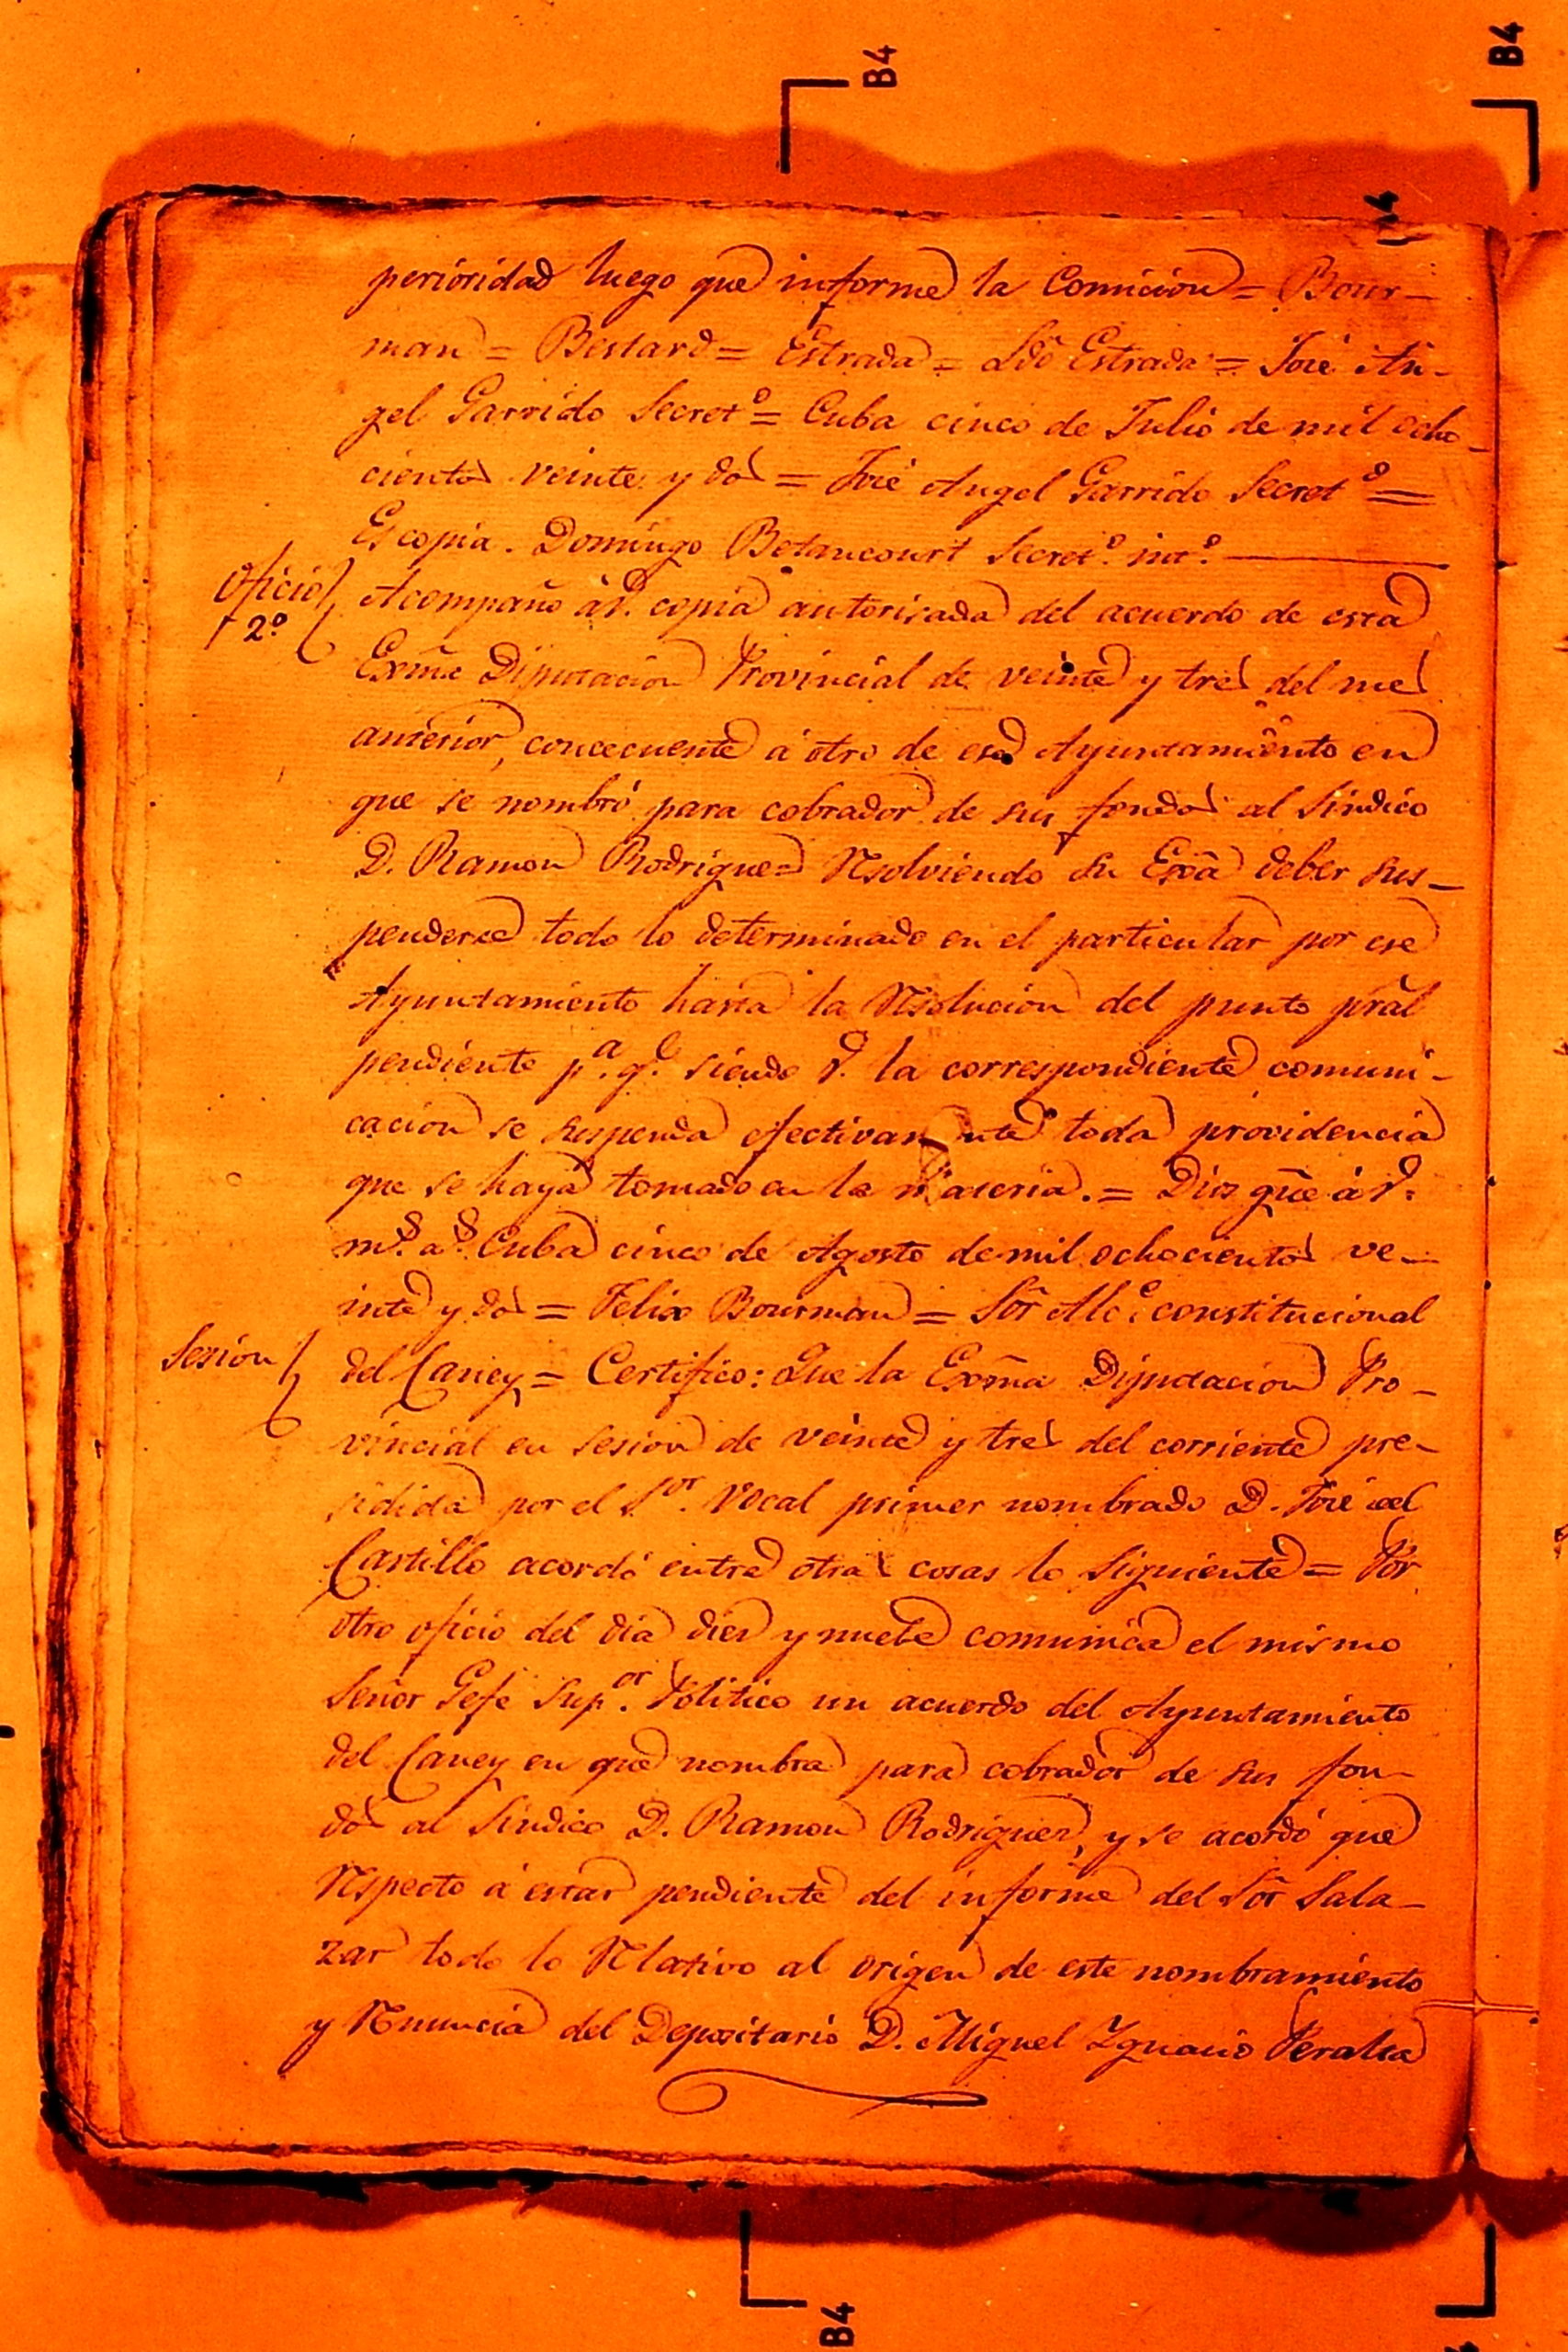 B4
B4
perioridad luego que informe la Comicion = Bour-
man = Bestard = Estrada = Ldo Estrada = José An-
gel Garrido Secretº = Cuba cinco de Julio de mil ocho-
cientos veinte y dos = José Angel Garrido Secretº =
Es copia. Domingo Betancourt Secretº. intº.
Oficio 2º
Acompaño á V. copia autorisada del acuerdo de esta
Exma Diputacion Provincial de veinte y tres del mes
anterior, concecuente á otro de ese Ayuntamiento en
que se nombró para cobrador de sus fondos al Sindico
D. Ramon Rodriguez Resolviendo Su Exa deber sus-
penderse todo lo determinado en el particular por ese
Ayuntamiento hasta la Resolucion del punto pral
pendiente pª. qe. siendo V. la correspondiente comuni-
cacion se suspenda efectivamente toda providencia
que se haya tomado en la materia. = Dios gue á V.
ms. as. Cuba cinco de Agosto de mil ochocientos ve-
inte y dos = Felix Bourman = Sor Alce. constitucional
Sesion
del Caney = Certifico: Que la Exma Diputacion Pro-
vincial en sesion de veinte y tres del corriente pre-
sidida por el Sor. Vocal primer nombrado D. José del
Castillo acordó entre otras cosas lo siguiente = Por
otro oficio del dia diez y nuebe comunica el mismo
Señor Gefe Supor. Politico un acuerdo del Ayuntamiento
del Caney en que nombra para cobrador de sus fon-
dos al Sindico D. Ramon Rodriguez, y se acordó que
Respecto á estar pendiente del informe del Sor Sala-
zar todo lo Relativo al origen de este nombramiento
y Renuncia del Depositario D. Miguel Ygnacio Peralta
B4